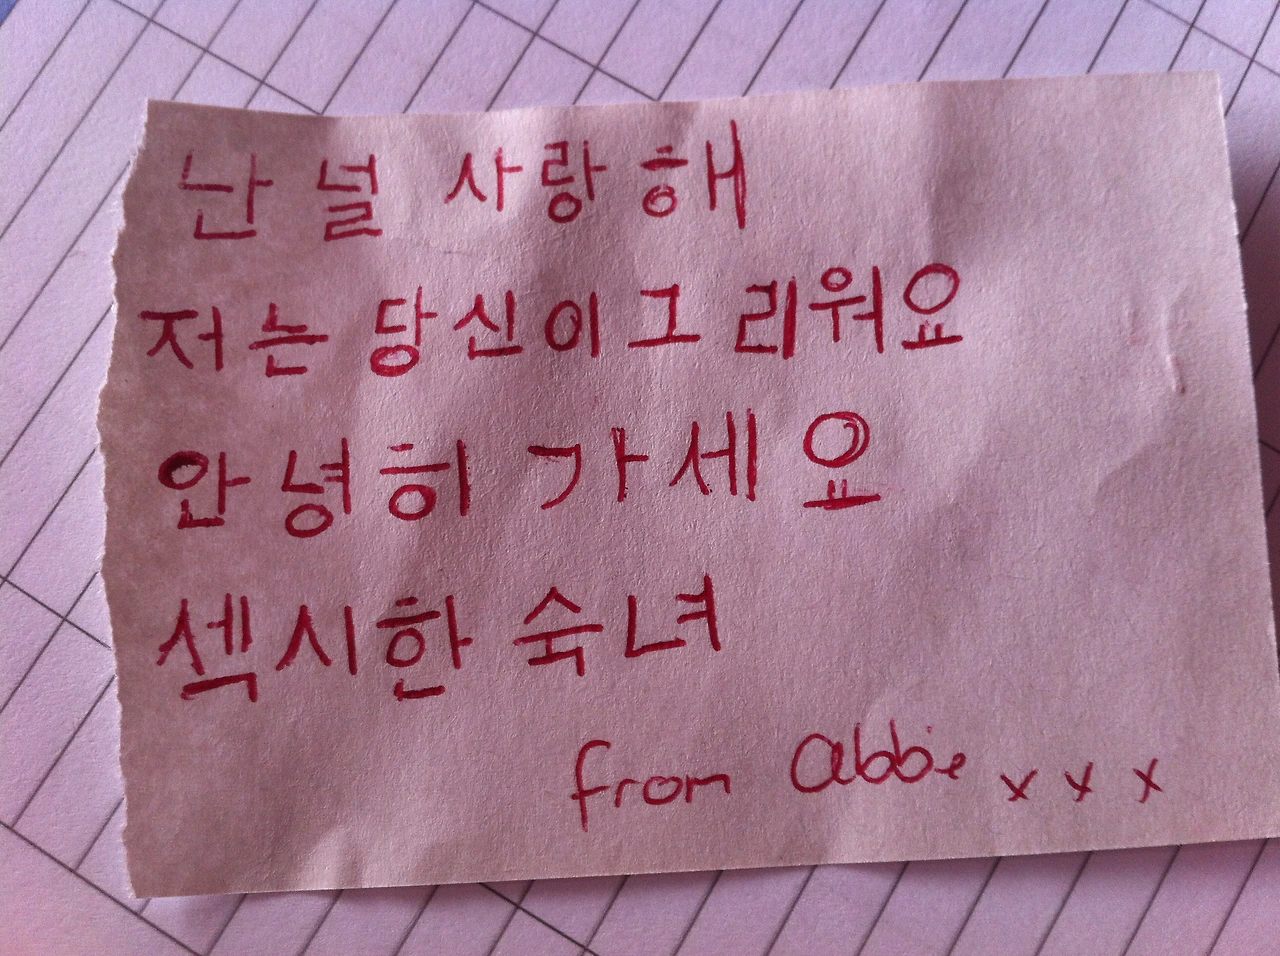 난 널 사랑해
저는 당신이 그리워요
안녕히 가세요
섹시한 숙녀
from abbie x x x